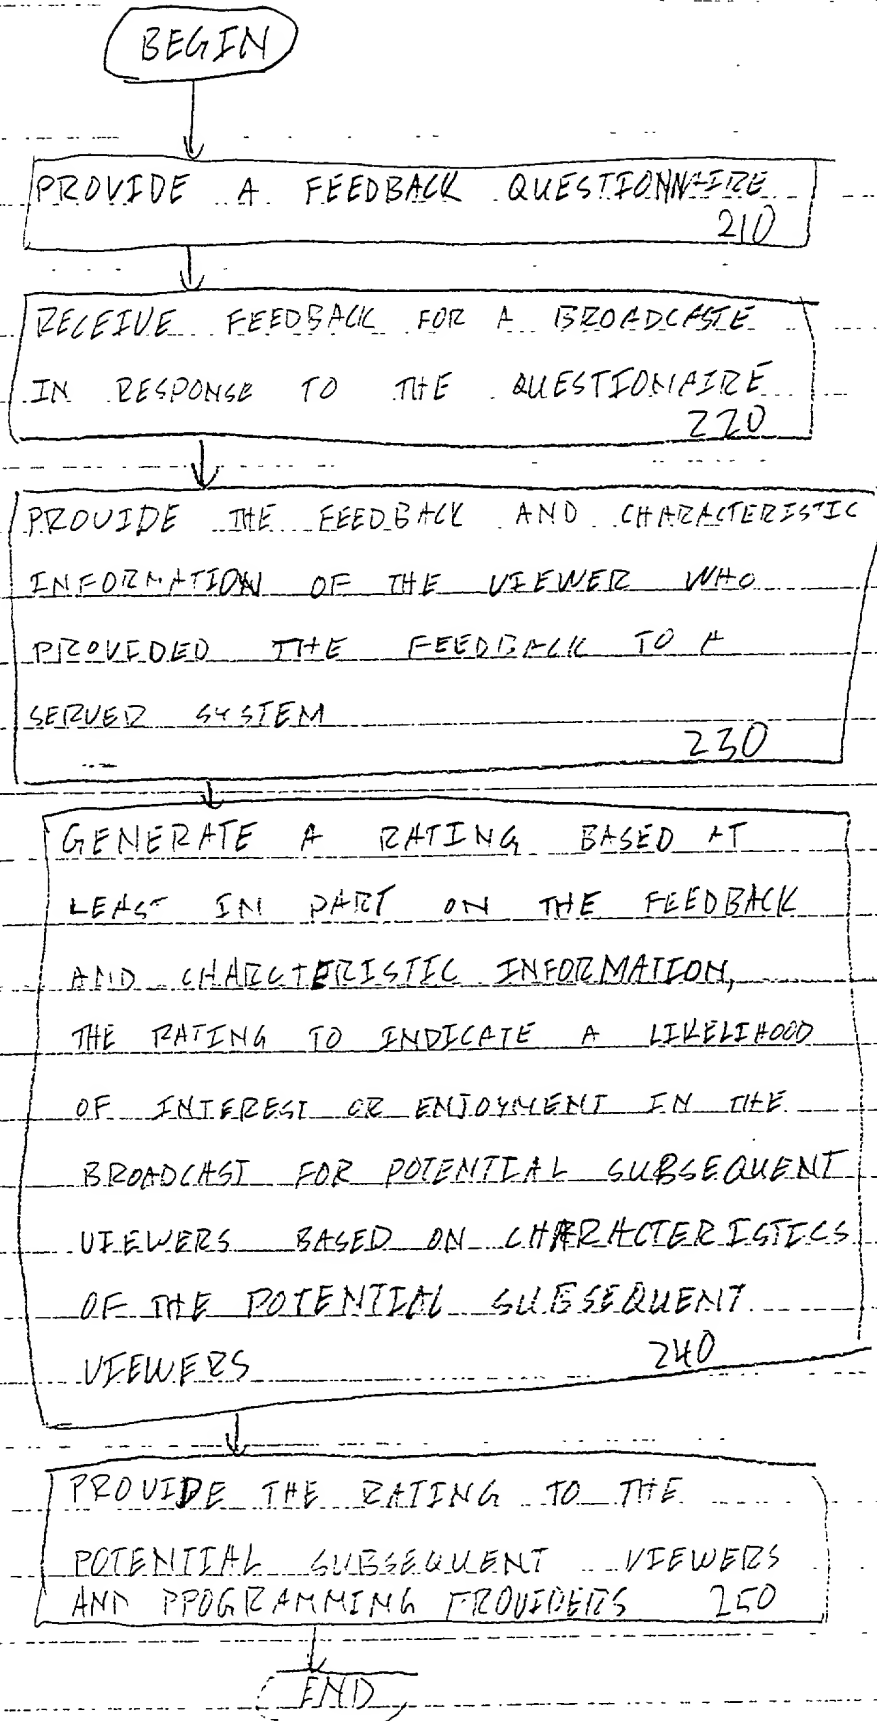 BEGIN
PROVIDE A FEEDBACK QUESTIONNAIRE
210
RECEIVE FEEDBACK FOR A BROADCASTE
IN RESPONSE TO THE QUESTIONAIRE
220
PROVIDE THE FEEDBACK AND CHARACTERISTIC
INFORMATION OF THE VIEWER WHO
PROVIDED THE FEEDBACK TO A
SERVER SYSTEM
230
GENERATE A RATING BASED AT
LEAST IN PART ON THE FEEDBACK
AND CHARCTERISTIC INFORMATION,
THE RATING TO INDICATE A LIKELIHOOD
OF INTEREST OR ENJOYMENT IN THE
BROADCAST FOR POTENTIAL SUBSEQUENT
VIEWERS BASED ON CHARACTERISTICS
OF THE POTENTIAL SUBSEQUENT
VIEWERS 240
PROVIDE THE RATING TO THE
POTENTIAL SUBSEQUENT VIEWERS
AND PROGRAMMING PROVIDERS 250
END